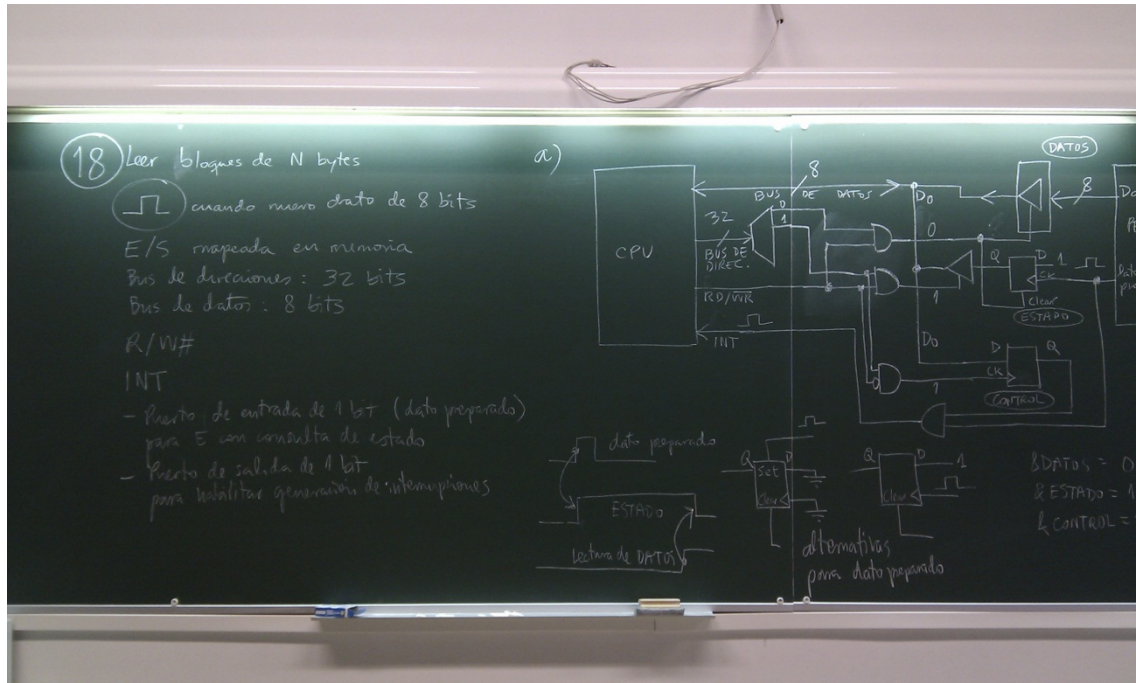 18 Leer bloques de N bytes
cuando nuevo dato de 8 bits
E/S mapeada en memoria
Bus de direciones: 32 bits
Bus de datos: 8 bits
R/W#
INT
- Puerto de entrada de 1 bit (dato preparado)
para E con consulta de estado
- Puerto de salida de 1 bit
para habilitar generación de interrupciones
a)
CPU
8
BUS DE DATOS
32
BUS DE
DIREC.
0
1
RD/WR
INT
DATOS
8
D0
0
1
Q D 1
CK
Clear
ESTADO
D0
D Q
CK
1
CONTROL
dato preparado
ESTADO
Lectura de DATOS
Q D
Set
Clear
Q D 1
Clear
alternativas
para dato preparado
&DATOS = 0
&ESTADO = 1
&CONTROL =